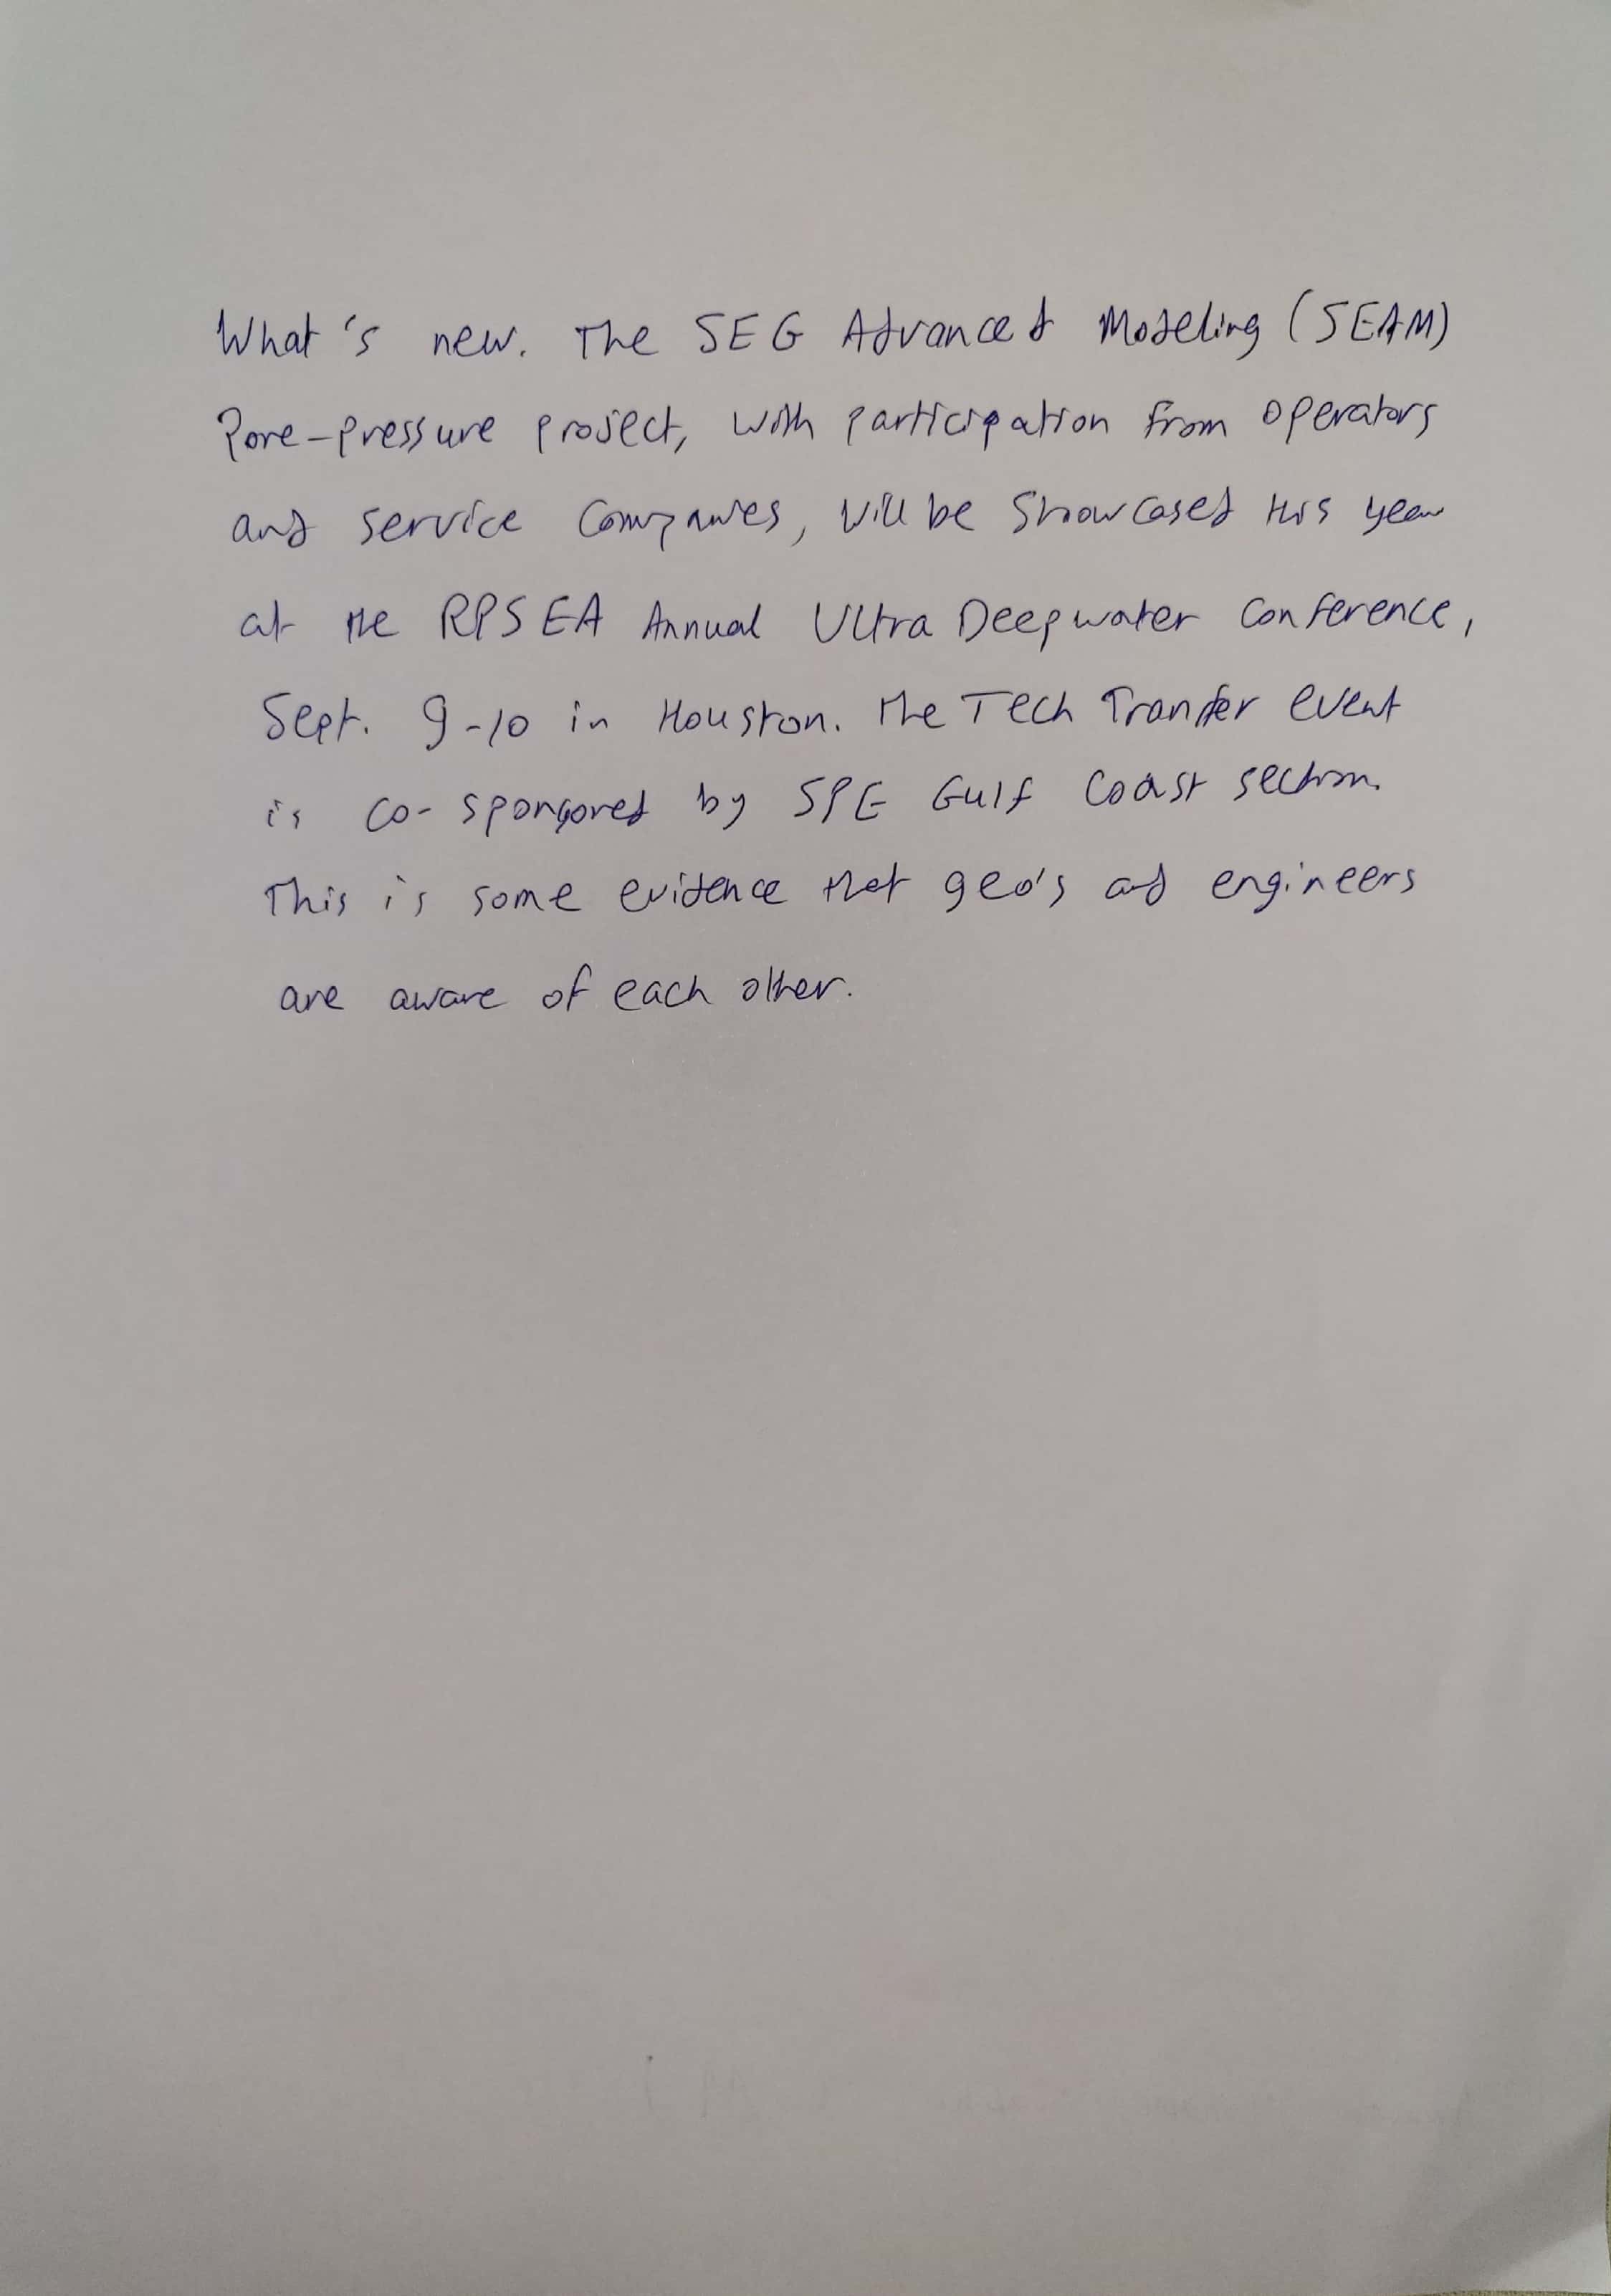 What's new. The SEG Advanced Modeling (SEAM)
Pore-pressure project, with participation from operators
and service companies, will be showcased this year
at the RPSEA Annual Ultra Deepwater Conference,
Sept. 9-10 in Houston. The Tech Tranfer event
is co-sponsored by SPE Gulf Coast section.
This is some evidence that geo's and engineers
are aware of each other.